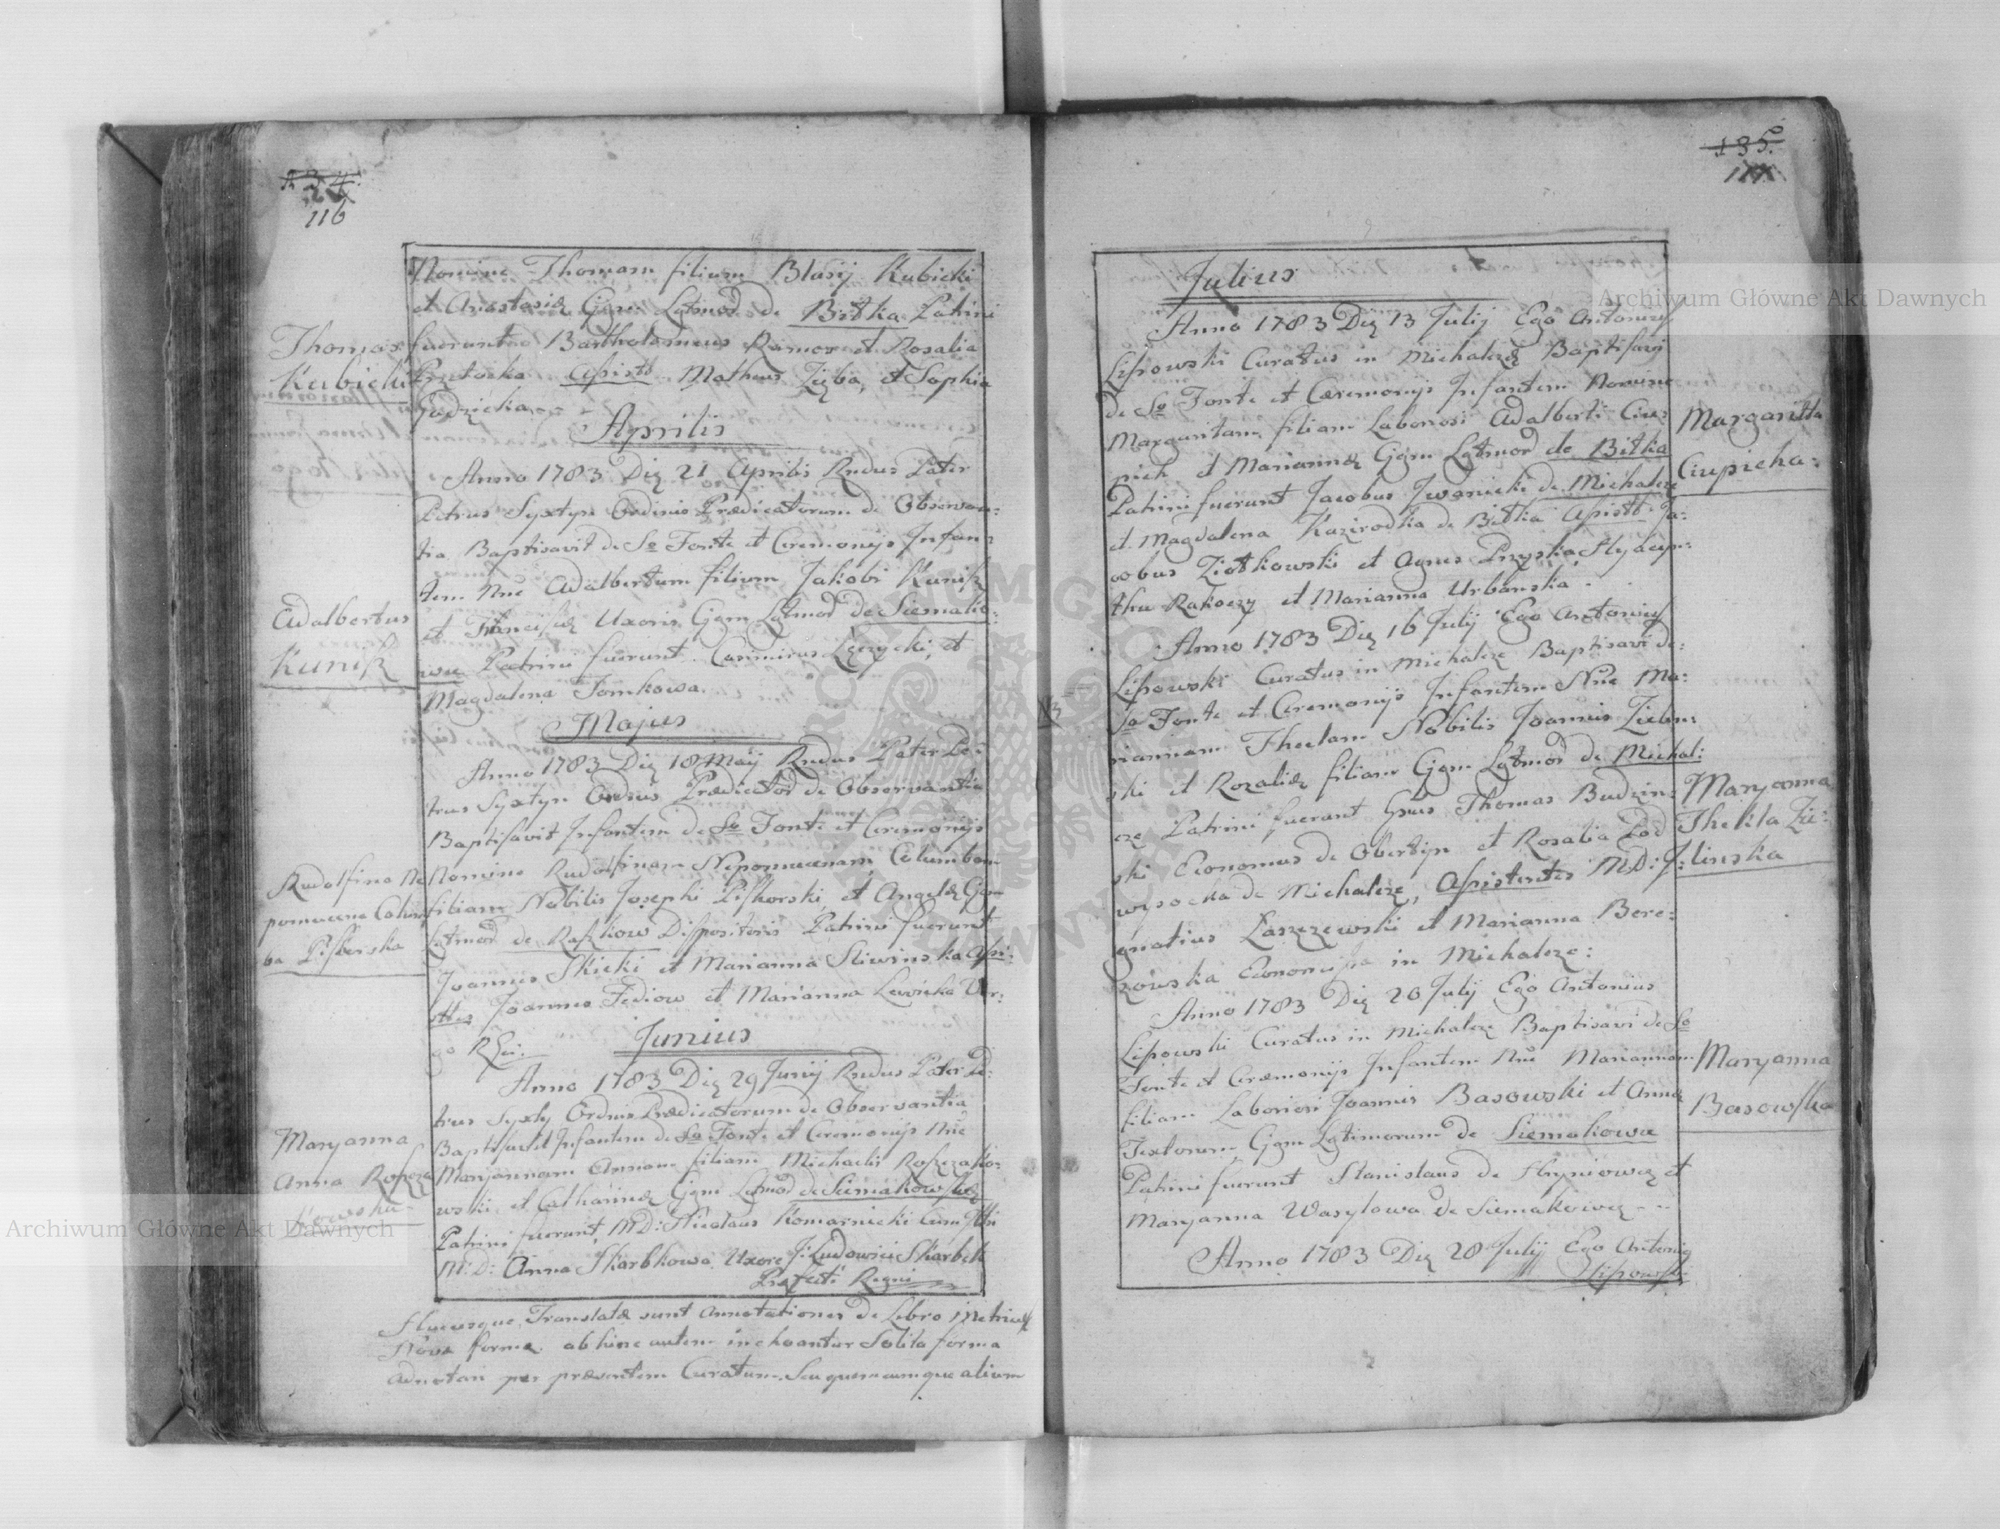 134.
116
Nomine Thomam filium Blasij Kubicki
et Anastasiæ Ggm Lgtmõd de Bitka Patrini
Thomas
fuerunt Bartholomeus Ramos et Rosalia
Kubicki
Assistt Matheus Zięba, et Sophia
Gadzicka
Aprilis
Anno 1783 Die 21 Aprilis Rndus Pater
Petrus Syxtyn Ordinis Prædicatorum de Observan:
tia Baptisavit de So Fonte et Ceremonijs Infan:
tem Nne Adalbertum filium Jakobi Kunisz
Adalbertus
et Franciscæ Uxoris Ggm Lgtmõd de Siemako:
Kunisz
wce Patrini fuerunt Casimirus Łęczycki, et
Magdalena Tomkowa.
Majus
Anno 1783 Die 18 Maij Rndus Pater Pe:
trus Syxtyn Ordnis Prædicatõd de Observantia
Baptisavit Infantem de So Fonte et Ceremonijs
Rudolfina Ne
Nomine Rudolfinam Nepomucenam Columbam
pomucena Colum
filiam Nobilis Josephi Piskorski, et Angelæ Ggm
ba Piskorska
Lgtmõd de Raszkow Dispositoris Patrini fuerunt
Joannes Skicki et Marianna Sliwinska Assi:
sttes Joannes Fediow et Marianna Lewicka Vir:
go
Junius
Anno 1783 Die 29 Junij Rndus Pater Pe:
trus Syxty Ordnis Prædicatorum de Observantia
Baptisavit Infantem de So Fonte et Ceremonijs Nne
Maryanna
Maryannam Annam filiam Michaelis Roszczako:
Anna Roszcza
wski et Catharinæ Ggm Lgtmõd de Siemakowce
kowska
Patrini fuerunt M:D: Nicolaus Komarnicki cum
M:D: Anna Skarbkowa Uxore J: Ludovici Skarbek
Præfecti Regni
Hucusque Translatæ sunt Annotationes de Libro Metrices
Nova forma ab hinc autem inchoantur Solita forma
adnotari per præsentem Curatum Seu quemcumque alium
135.
117
Julius
Anno 1783 Die 13 Julij Ego Antonius
Lipowski Curatus in Michalcze Baptisavi
de So Fonte et Cæremonijs Infantem Nomine
Margaritam filiam Laboriosi Adalberti Ciu:
Margaritta
pich et Mariannæ Ggm Lgtmõd de Bitka
Ciupicha:
Patrini fuerunt Jacobus Iwanicki de Michalcze
et Magdalena Kazirodka de Bitka Assistt Ja:
cobus Ziotkowski et Agnes Przyska
Rakoczy et Marianna Urbanska
Anno 1783 Die 16 Julij Ego Antonius
Lipowski Curatus in Michalcze Baptisavi de
So Fonte et Ceremonijs Infantem Nne Ma:
riannam Theclam Nobilis Joannis Zielin:
ski et Rozaliæ filiam Ggm Lgtmõd de Michal:
Maryanna
cze Patrini fuerunt Gsus Thomas Budzin:
Thekla Zie:
ski Economus de Obertyn et Rosalia Pod
linska
wysocka de Michalcze, Assistentes M:D: J:
gnatius Laszczewski et Marianna Bere:
zowska Economissa in Michalcze:
Anno 1783 Die 20 Julij Ego Antonius
Lipowski Curatus in Michalcze Baptisavi de So
Maryanna
Fonte et Ceræmonijs Infantem Nne Mariannam
filiam Laboriosi Joannis Basowski et Annæ
Basowska
Textorum Ggm Lgtimorum de Siemakowce
Patrini fuerunt Stanislaus de Hryniowce et
Maryanna Wasylowa de Siemakowce
Anno 1783 Die 28 Julij Ego Antonius
Lipowski
Archiwum Główne Akt Dawnych
Archiwum Główne Akt Dawnych